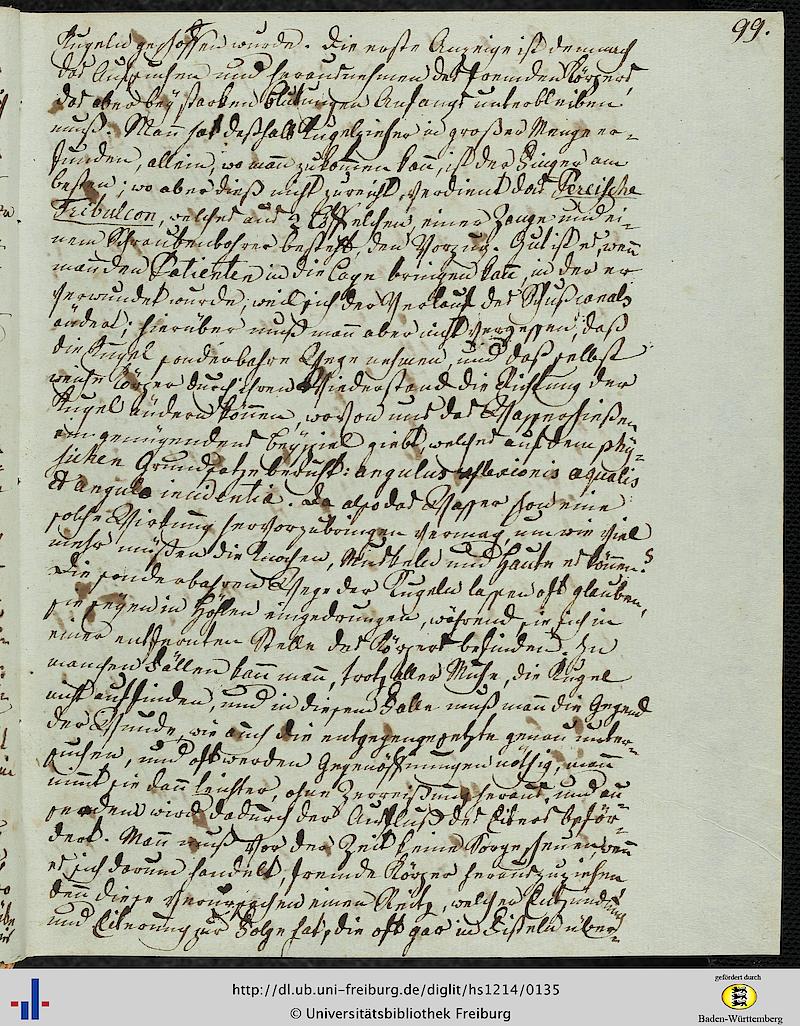 99.
Kugeln geschossen wurde. Die erste Anzeige ist demnach
das Aufsuchen und herausnehmen des fremden Körpers,
das aber bey starken Blutungen Anfangs unterbleiben
muß. Mann hat deßhalb Kugelzieher in großer Menge er-
funden, allein, wo mann zukommen kann, ist der Finger am
besten; wo aber dieß nicht zureicht, verdient das Percische
Tribulcon, welches aus 2 Löffelchen, einer Zange und ei-
nem Schraubenbohrer besteht, den Vorzug. Gut ist es, wenn
man den Patienten in die Lage bringen kann, in der er
verwundet wurde; weil sich der Verlauf des Schußcanals
ändert; hierüber muß mann aber nicht vergessen, daß
die Kugel sonderbahre Wege nehmen, und daß selbst
weiche Körper durch ihren Wiederstand die Richtung der
Kugel ändern können, wovon uns das Wasserschießen
ein genügendes beyspiel giebt, welches auf dem phy-
sischen Grundsatze beruht: angulus reflexionis aequalis
est angulo incidentia. Da also das Wasser schon eine
solche Wirkung hervorzubringen vermag, um wie viel
mehr müßen die Knochen, Muskeln und Häute es können?
Die sonderbahren Wege der Kugeln lassen oft glauben,
sie seyen in Höhlen eingedrungen, während sie sich in
einer entfernten Stelle des Körpers befinden. In
manchen Fällen kann mann, trotz aller Mühe, die Kugel
nicht auffinden, und in diesem Falle muß mann die Gegend
der Wunde, wie auch die entgegengesetzte genau unter-
suchen, und oft werden Gegenöffnungen nöthig, mann
nimmt sie dann leichter, ohne Zerreißung heraus, und au-
serdem wird dadurch der Ausfluß des Eiters beför-
dert. Mann muß vor der Zeit keine Sorge scheuen, wenn
es sich darum handelt, fremde Körper herauszuziehen
denn diese verursachen einen Reitz, welcher Entzündung
und Eiterung zur Folge hat, die oft gar in Fisteln über-
http://dl.ub.uni-freiburg.de/diglit/hs1214/0135
© Universitätsbibliothek Freiburg
gefördert durch
Baden-Württemberg